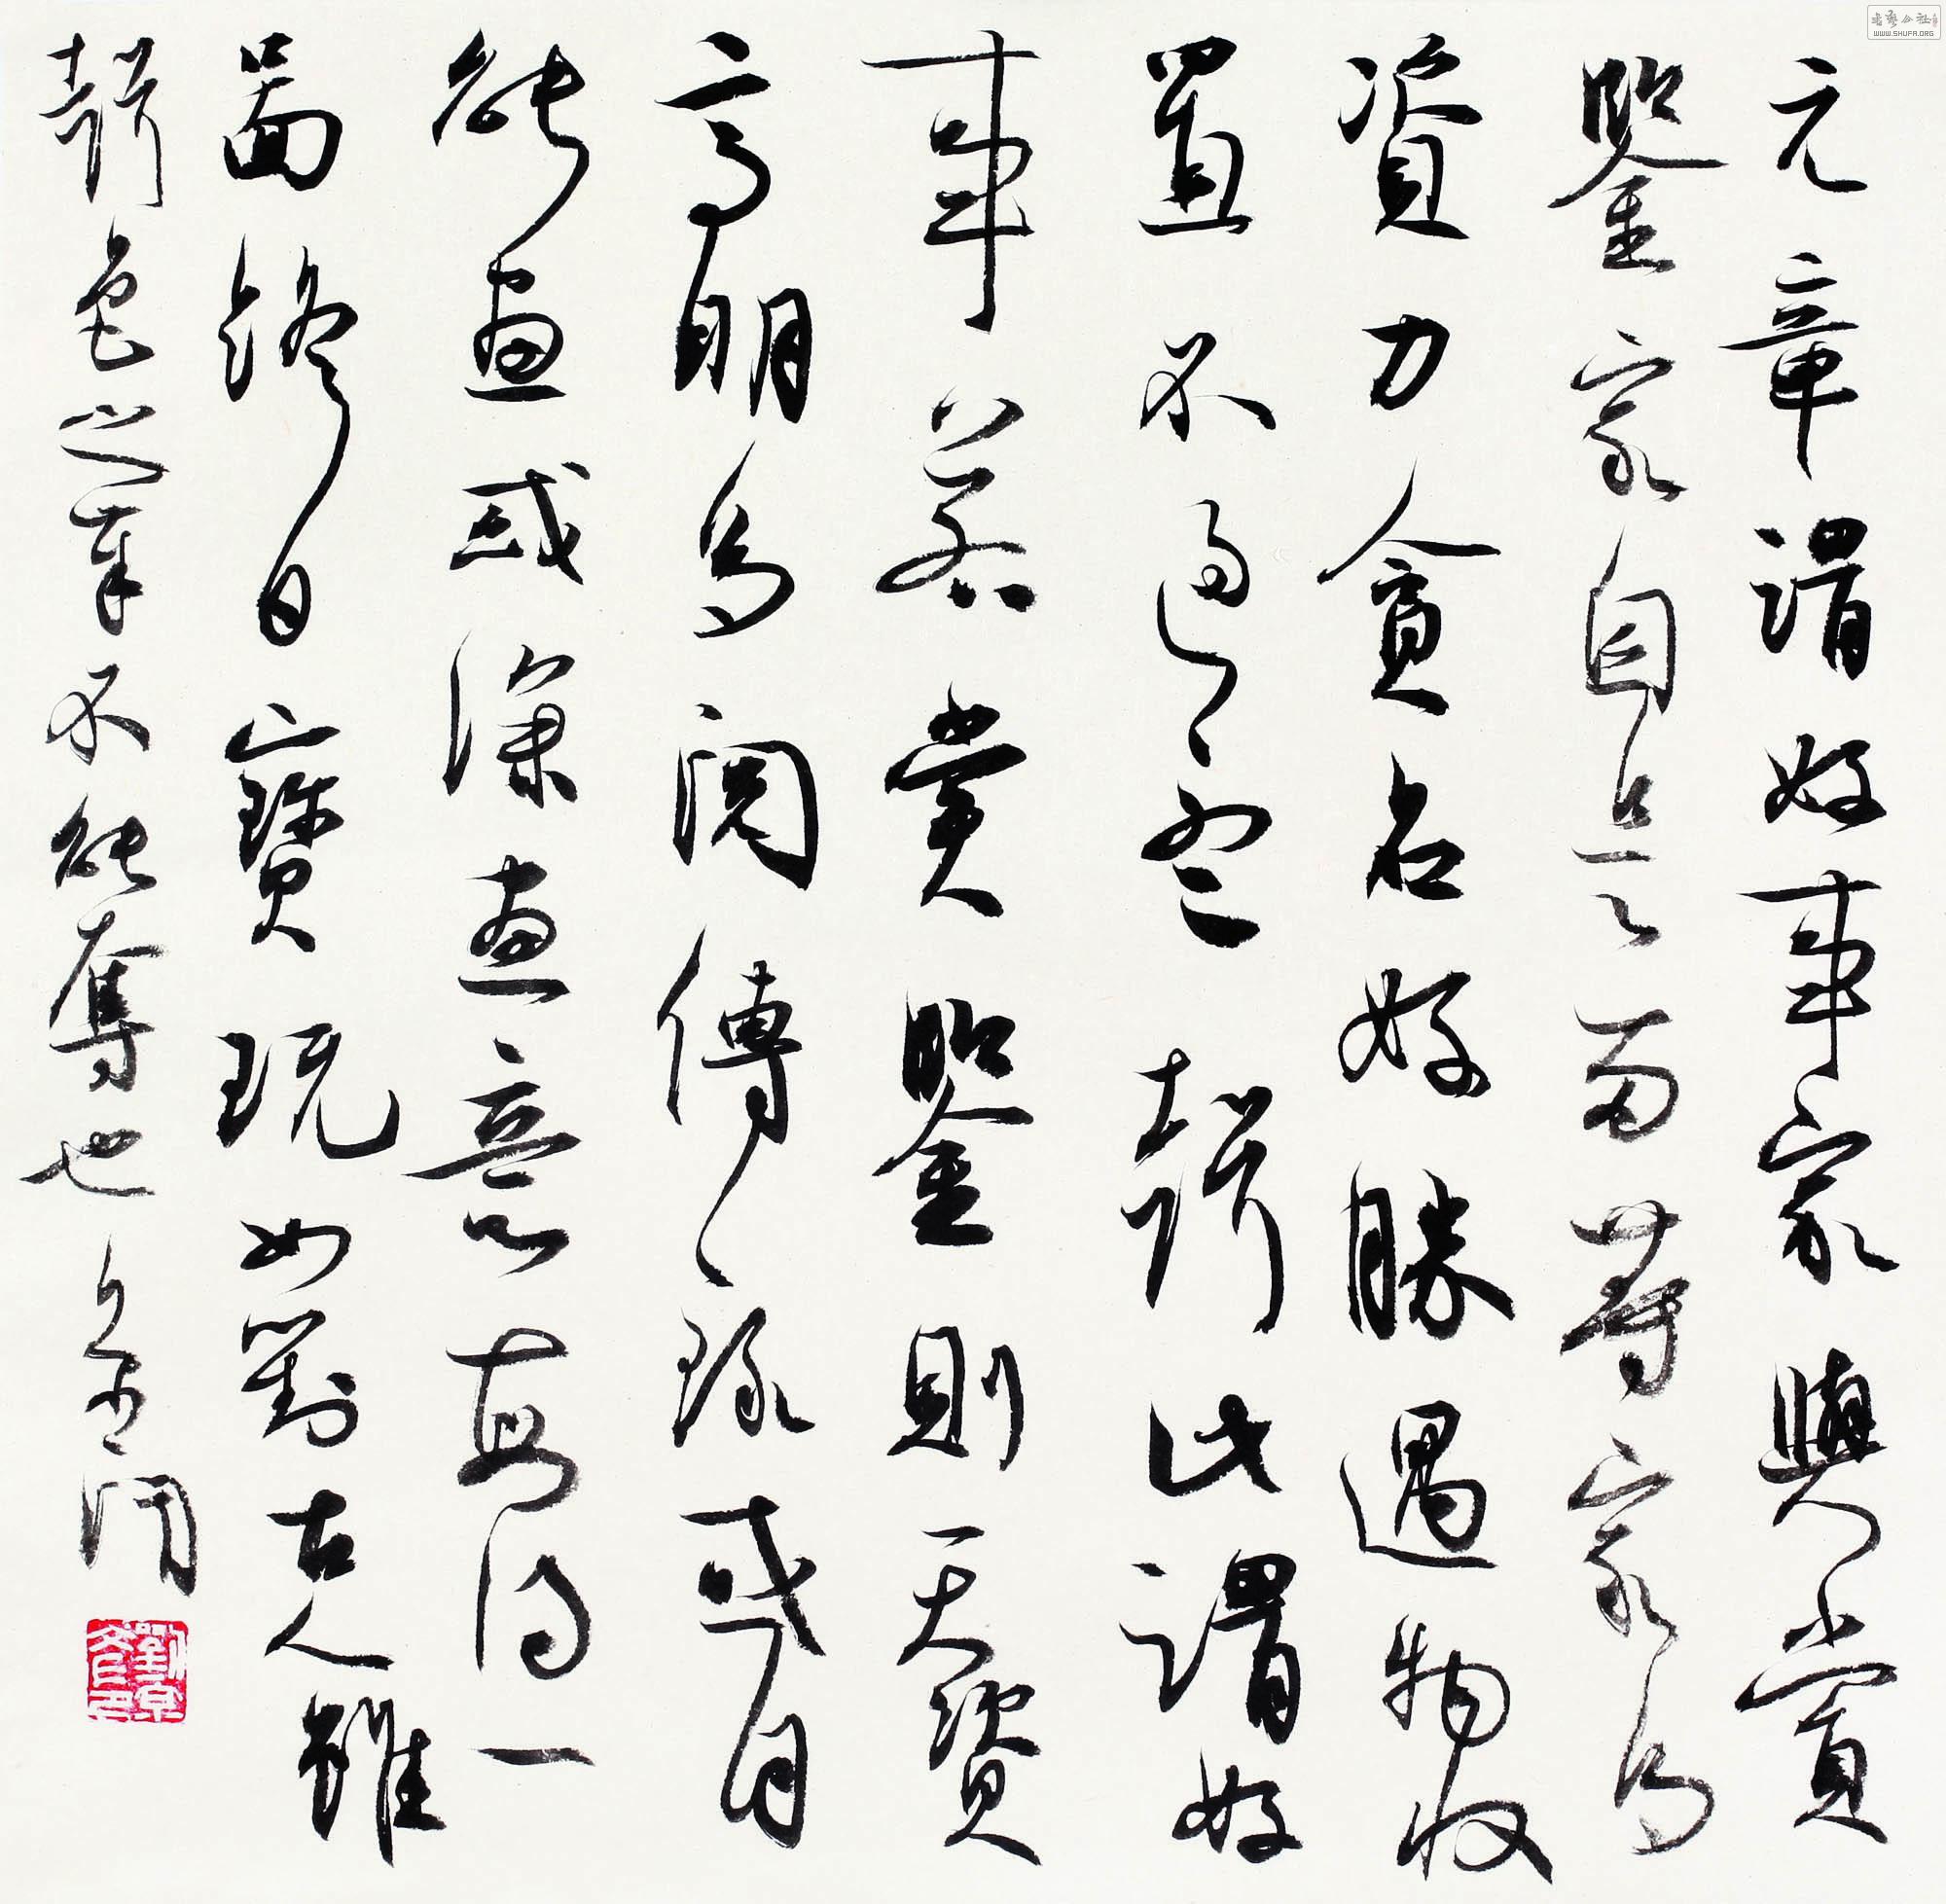 元章謂好事家與賞
鑒家自是兩等家多
資力貪名好勝遇物收
置不過聽聲此謂好
事若賞鑒則天資
高明多閱傳錄或自
能畫或深畫意每得一
圖終日寶玩如對古人雖
聲色之奉不能奪也京聞
WWW.SHUFA.ORG